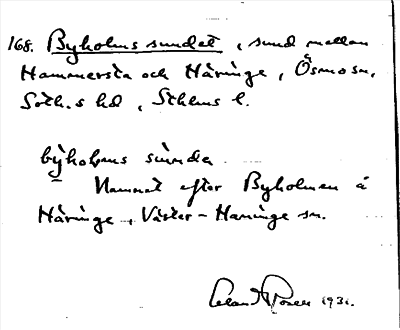 168. Byholmssundet, sund mellan
Hammersta och Häringe, Ösmo sn,
Soth.s hd, Sthlms l.
byholms sunda
Namnet efter Byholmen å
Häringe, Väster-Haninge sn.
1931.